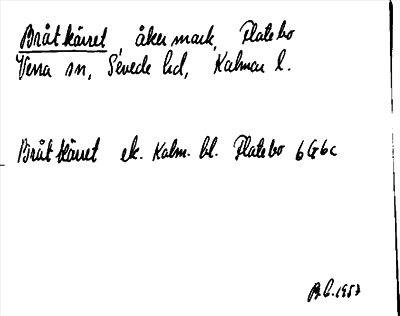 Bråtkärret, åkermark, Flatebo
Vena sn, Sevede hd, Kalmar l.
Bråtkärret ek. Kalm. bl. Flatebo 6G6c
B.G. 1957